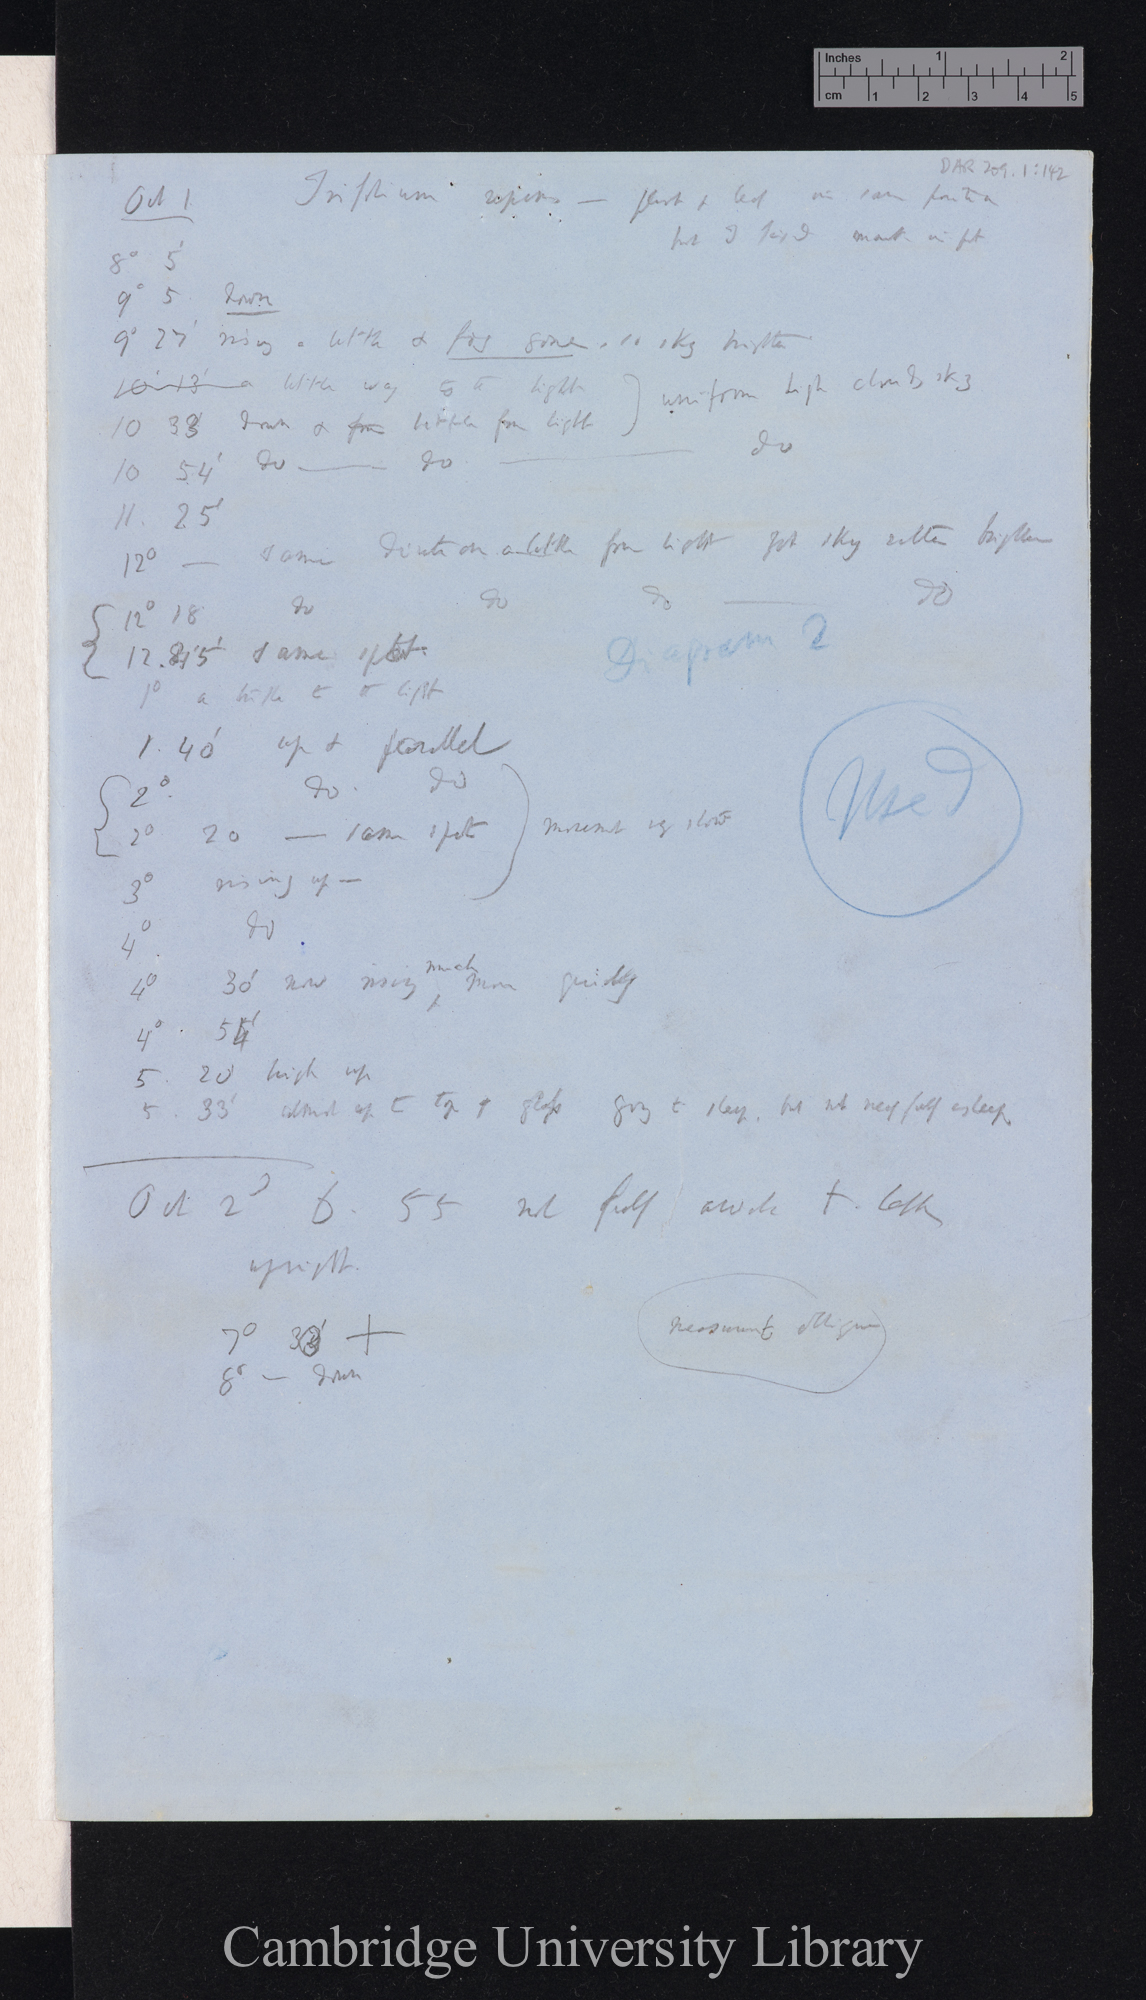 Inches 1 2
cm 1 2 3 4 5
DAR 209.1:142
Oct 1 Trifolium repens — plant & leaf in same position
but I fixed mark in pot
8° 5'
9° 5 down
9° 27' rising a little & fog gone, so sky brighter
10° 13' a little way to the light
10 33 down & from little from light } uniform high cloudy sky
10 54' do —— do —— do
11. 25'
12° — same direction a little from light yet sky rather brighter
12° 18 do do do —— do
12. 45' same spot
Diagram 2
1° a little to the light
1. 40' up & parallel
2°. do. do
2° 20 — same spot } movement very slow
Used
3° rising up —
4°. do
4° 30' now rising much more quickly
4°. 54'
5. 20' high up
5. 33' almost up to top of glass going to sleep, but not nearly full asleep
Oct 2d 6. 55 not full awake +. leaflets
upright.
7° 33' +
8° — down